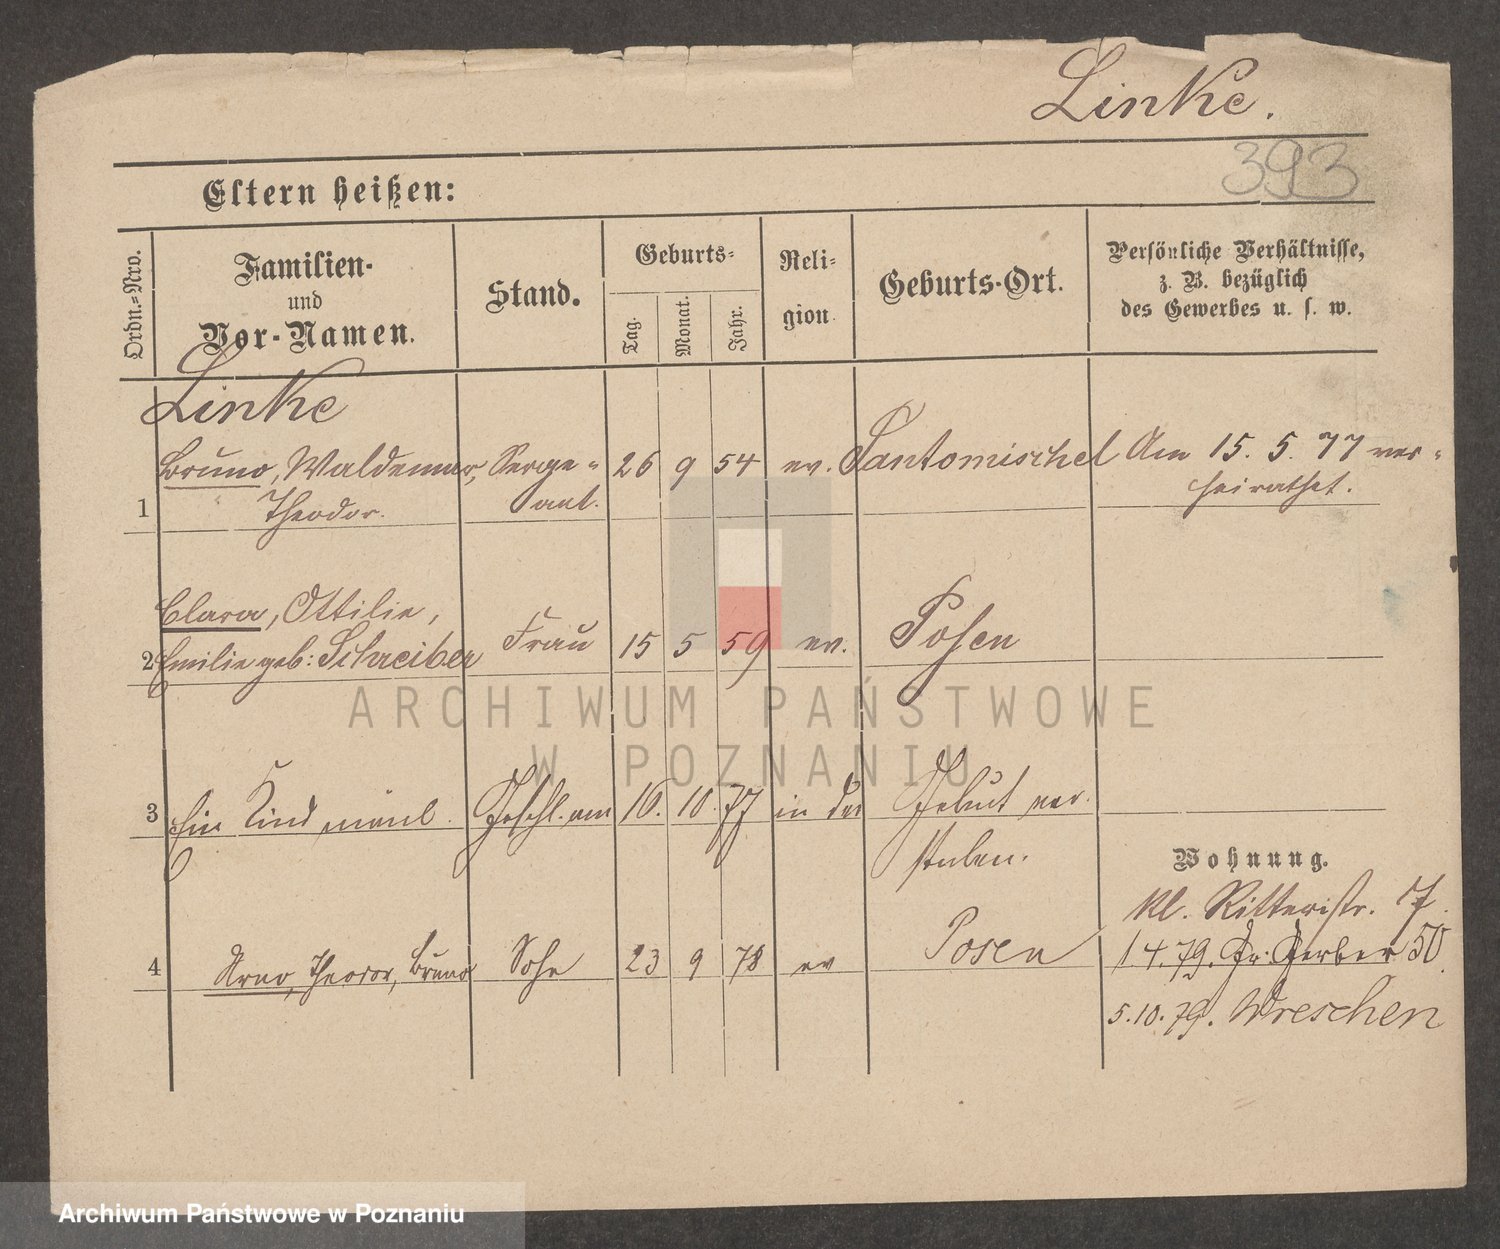 Linke.
393
Eltern heißen:
Ordn.-Nro.
Familien-
und
Vor-Namen.
Stand.
Geburts-
Tag.
Monat.
Jahr.
Reli-
gion.
Geburts-Ort.
Persönliche Verhältnisse,
z. B. bezüglich
des Gewerbes u. s. w.
Linke
1 Bruno, Waldemar, Serge- 26 9 54 ev. Santomischel Am 15. 5. 77 ver-
Theodor. ant. heirathet.
Clara, Ottilie,
2 Emilie geb: Schreiber Frau 15 5 59 ev. Posen
ARCHIWUM PAŃSTWOWE
W POZNANIU
3 Ein Kind männl. Geschl. am 16. 10. 77 in der Geburt ver-
storben.
Wohnung.
kl. Ritterstr. 7.
4 Arno, Theodor, Bruno Sohn 23 9 78 ev Posen
1 4. 79. Gr. Gerber 50.
5. 10. 79. Wreschen
Archiwum Państwowe w Poznaniu